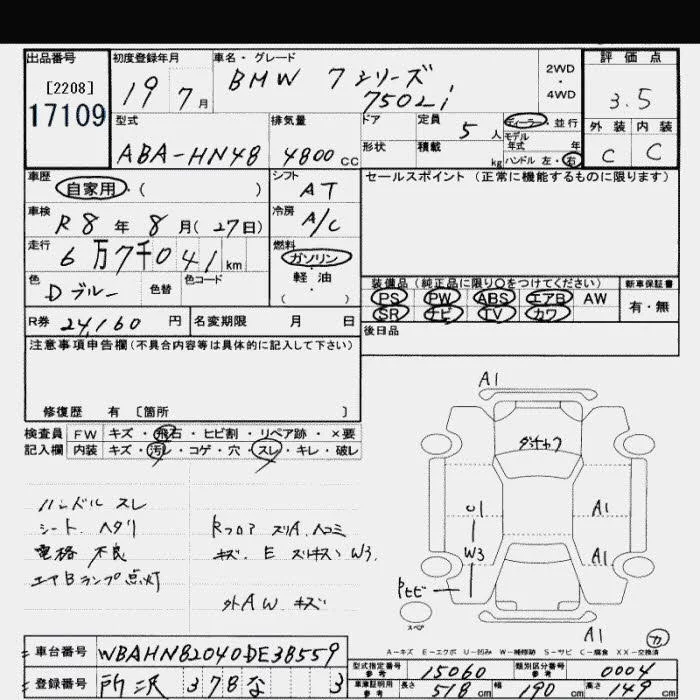 出品番号
[2208]
17109
初度登録年月
19 7月
車名・グレード
BMW 7シリーズ
750Li
2WD
・
4WD
評価点
3.5
外装 内装
C C
型式
ABA-HN48
排気量
4800cc
ドア
定員 5人
形状
積載 kg
ディーラー・並行
モデル
年式 年
ハンドル 左・右
車歴
自家用・( )
シフト
AT
セールスポイント (正常に機能するものに限ります)
車検
R8年8月(27日)
冷房
A/C
走行
6万7千041km
燃料
ガソリン
軽・油
( )
色
Dブルー
色替
色コード
装備品(純正品に限り〇をつけてください)
新車保証書
PS PW ABS エアB AW
SR ナビ TV カワ
有・無
R券 24,160円
名変期限 月 日
後日品
注意事項申告欄(不具合内容等は具体的に記入して下さい)
修復歴 有 [箇所 ]
検査員 FW キズ・飛石・ヒビ割・リペア跡・×要
記入欄 内装 キズ・汚レ・コゲ・穴・スレ・キレ・破レ
ハンドル スレ
シート ヘタリ
電格 不良
エアBランプ点灯
Rフロア スリA、ヘコミ
キズ、E スリキズ、W3、
外AW、キズ
A1
U1
W3
A1
A1
A1
スペア
カ
A-キズ E-エクボ U-凹み W-補修跡 S-サビ C-腐食 XX-交換済
車台番号 WBAHN82040DE38559
登録番号 所沢 378 な 3
型式指定番号
参考
15060
類別区分番号
参考
0004
車庫証明用
参考
長さ 518cm 幅 190cm 高さ 149cm